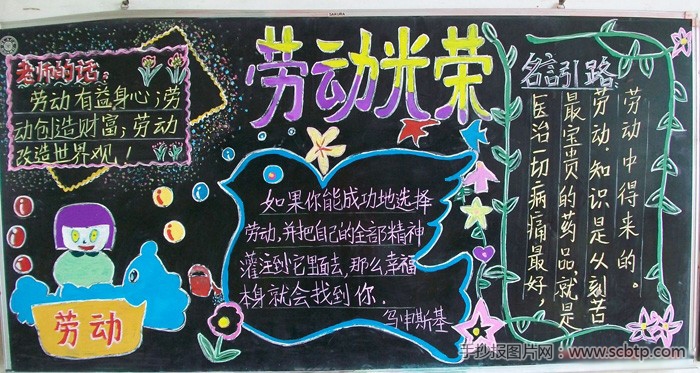 SAKURA
劳动光荣
老师的话：
劳动有益身心；劳
动创造财富；劳动
改造世界观！
劳动
如果你能成功地选择
劳动，并把自己的全部精神
灌注到它里面去，那么幸福
本身就会找到你．
乌申斯基
名言引路
医治一切病痛最好，
最宝贵的药品，就是
劳动，知识是从刻苦
劳动中得来的。
手抄报图片网：www.scbtp.com